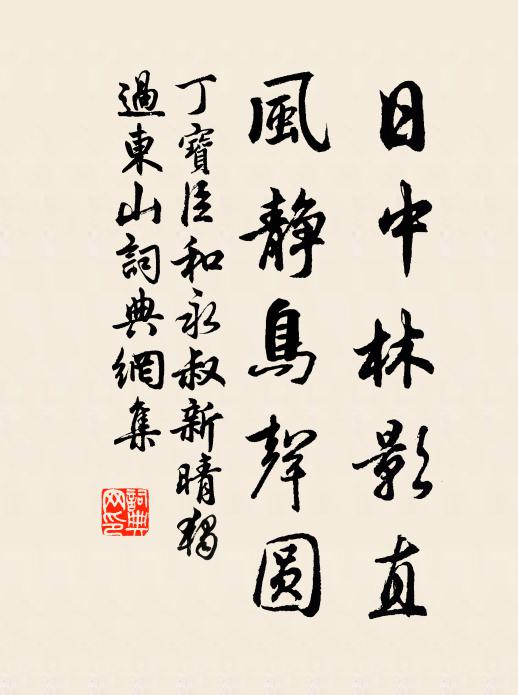 日中林影直
風静鳥聲圆
丁寶臣和永叔新晴獨
過東山詞典網集
詞典
网印